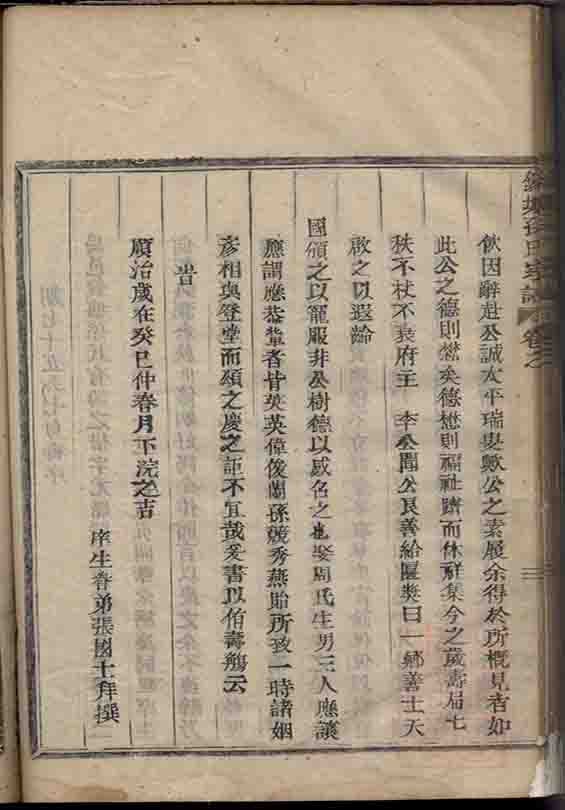 飲因辭赴公誠太平瑞叟歟公之素履余得於所概見者如
此公之德則懋矣德懋則福祉躋而休祥集今之歲壽屆七
秩不杖不衰府王 李公聞公良善給匾奬曰一鄉善士天
敞之以遐齡
國頒之以寵服非公樹德以感名之也娶周氏生男三人應讓
應謂應恭輩者皆英英偉俊蘭孫競秀燕貽所致一時諸姻
彥相與登堂而頌之慶之詎不宜哉爰書以伯壽觴云
旹
順治歲在癸巳仲春月下浣之吉
庠生眷弟張國士拜撰
氏家譜 卷之